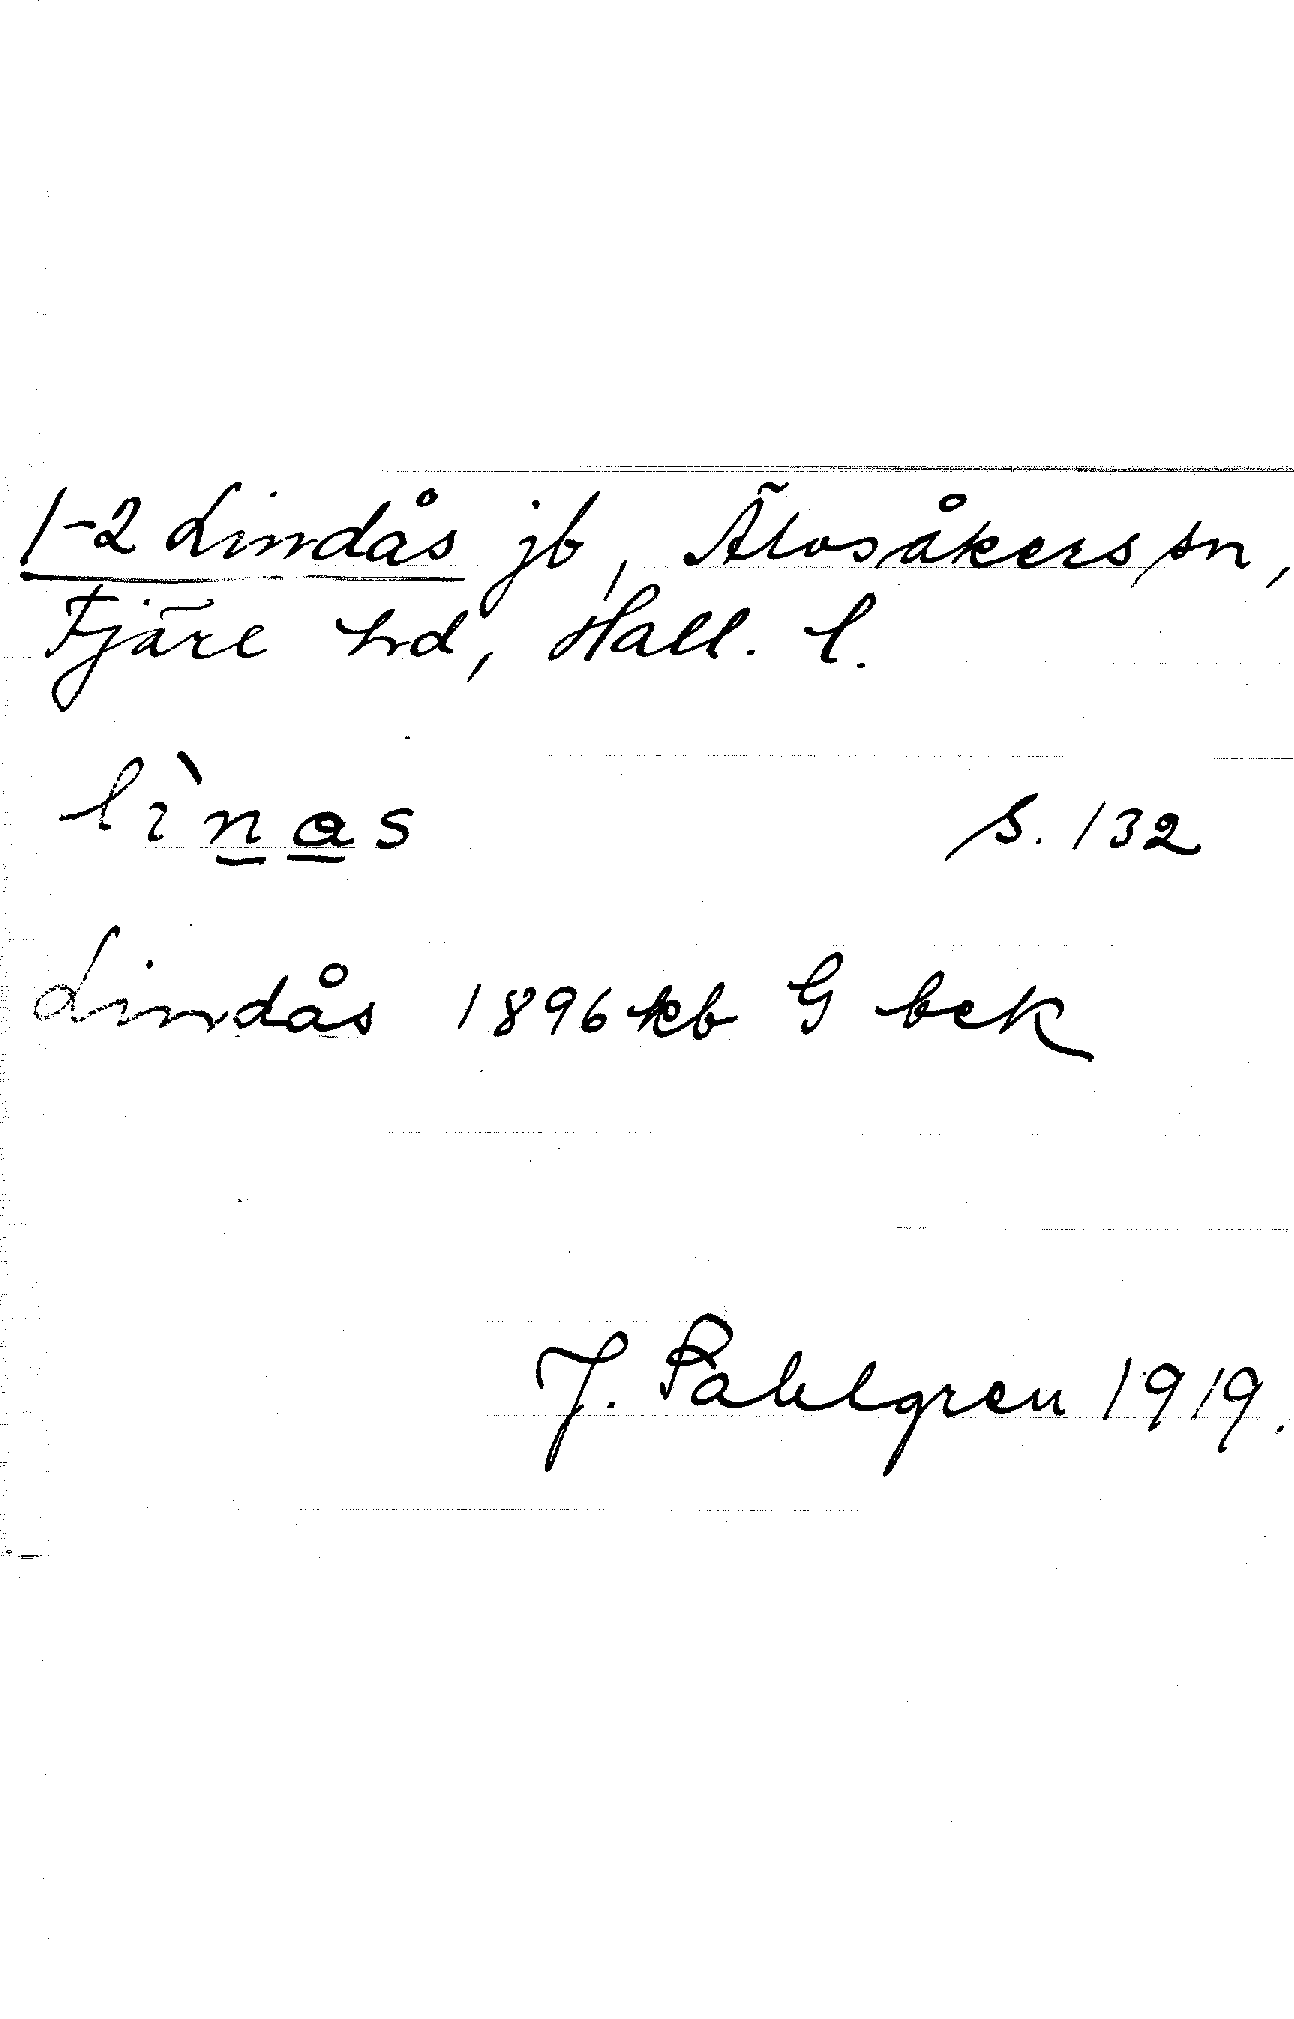 1-2 Lindås jb, Älvsåkers sn,
Fjäre hd, Hall. l.
lìnas S. 132
Lindås 1896 kb G bek
J. Pahlgren 1919.